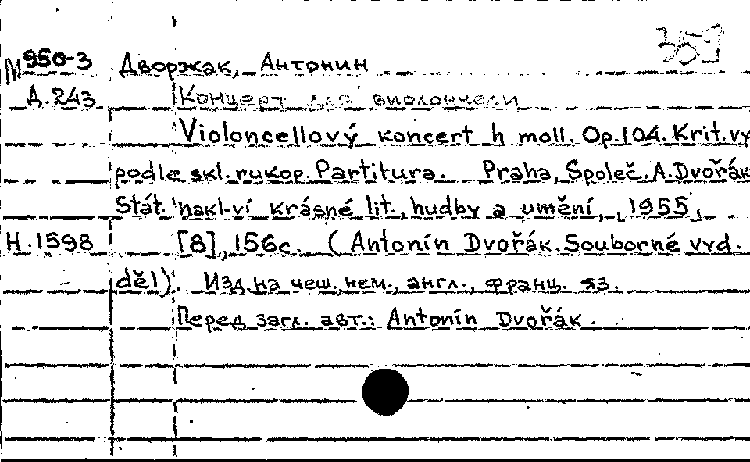 М950-3 Дворжак, Антонин 359
Д.243 Концерт для виолончели
Violoncellový koncert h moll. Op.104. Krit.vy
podle skl. rukop. Partitura. Praha, Společ. A. Dvořák
Stát. nakl-ví krásné lit., hudby a umění, 1955,
Н.1598 [8], 156с. (Antonín Dvořák. Souborné vyd.
děl). Изд. на чеш., нем., англ., франц. яз.
Перед загл. авт.: Antonín Dvořák.